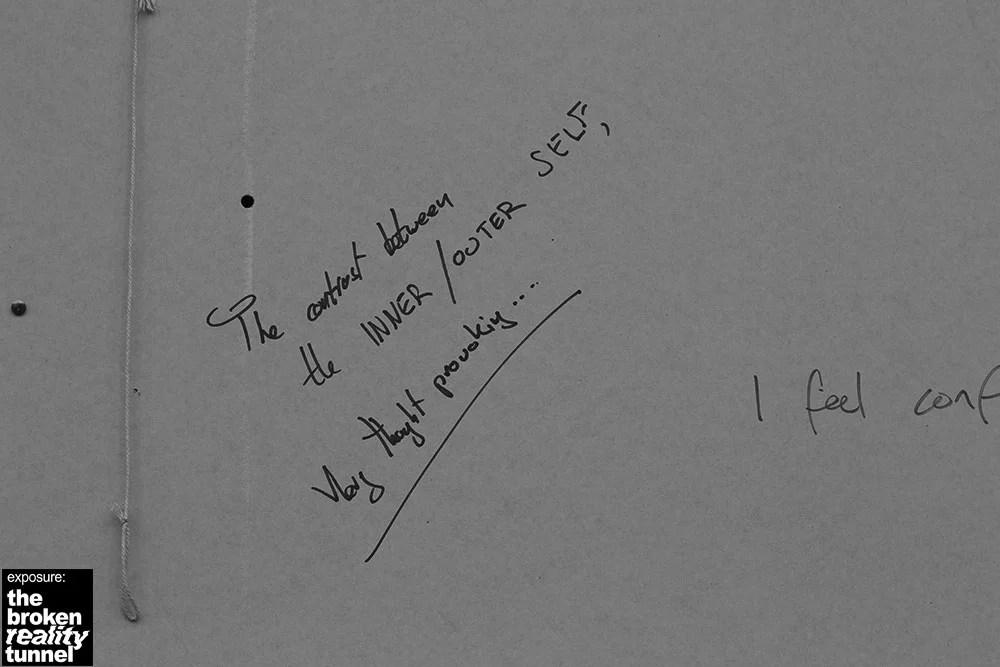 The contrast between
the INNER / OUTER SELF,
Very thought provoking....
I feel conf
exposure:
the
broken
reality
tunnel